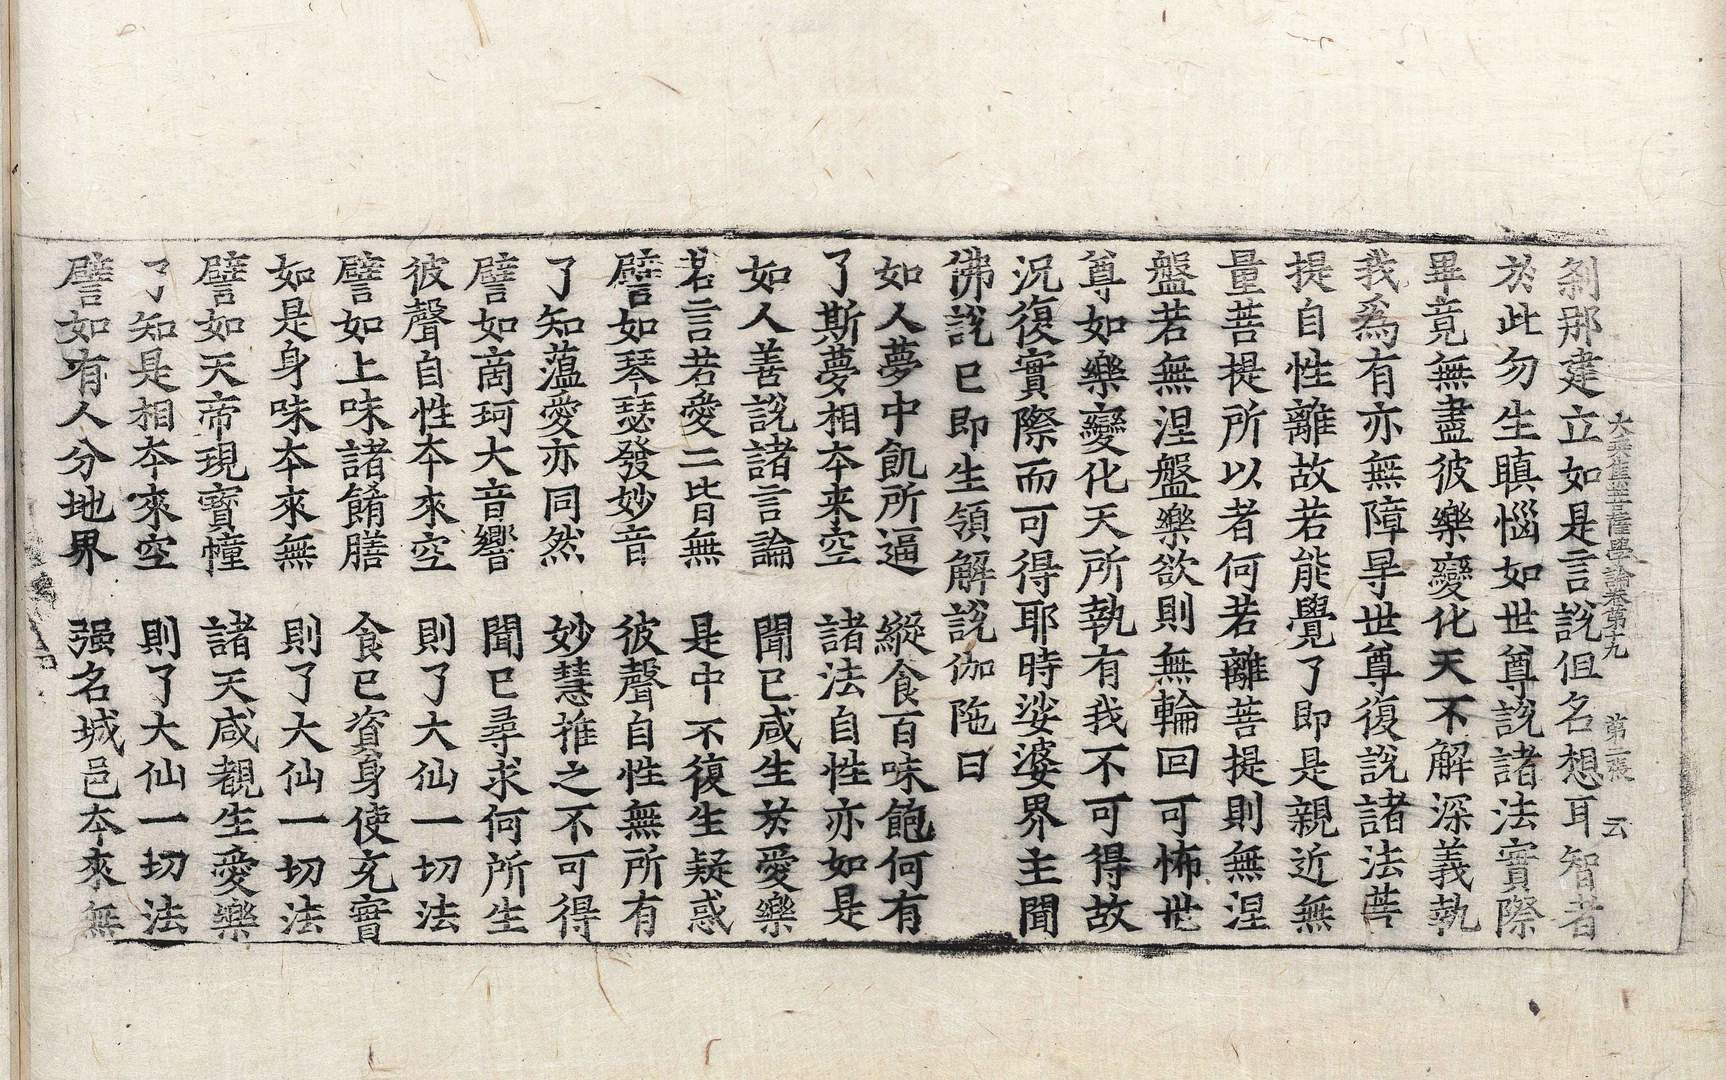 大乘集菩薩學論卷第十九 第二張 云
刹那建立如是言說但名想耳智者
於此勿生瞋惱如世尊說諸法實際
畢竟無盡彼樂變化天不解深義執
我爲有亦無障㝵世尊復說諸法菩
提自性離故若能覺了即是親近無
量菩提所以者何若離菩提則無涅
盤若無涅盤樂欲則無輪回可怖世
尊如樂變化天所執有我不可得故
況復實際而可得耶時娑婆界主聞
佛說已即生領解說伽陁曰
如人夢中飢所逼 縱食百味飽何有
了斯夢相夲来空 諸法自性亦如是
如人善說諸言論 聞已咸生於愛樂
若言若愛二皆無 是中不復生疑惑
譬如琴瑟發妙音 彼聲自性無所有
了知蘊愛亦同然 妙慧推之不可得
譬如商珂大音響 聞已尋求何所生
彼聲自性夲來空 則了大仙一切法
譬如上味諸餚膳 食已資身使充實
如是身味夲來無 則了大仙一切法
譬如天帝現寳幢 諸天咸覩生愛樂
了知是相夲來空 則了大仙一切法
譬如有人分地界 强名城邑夲來無